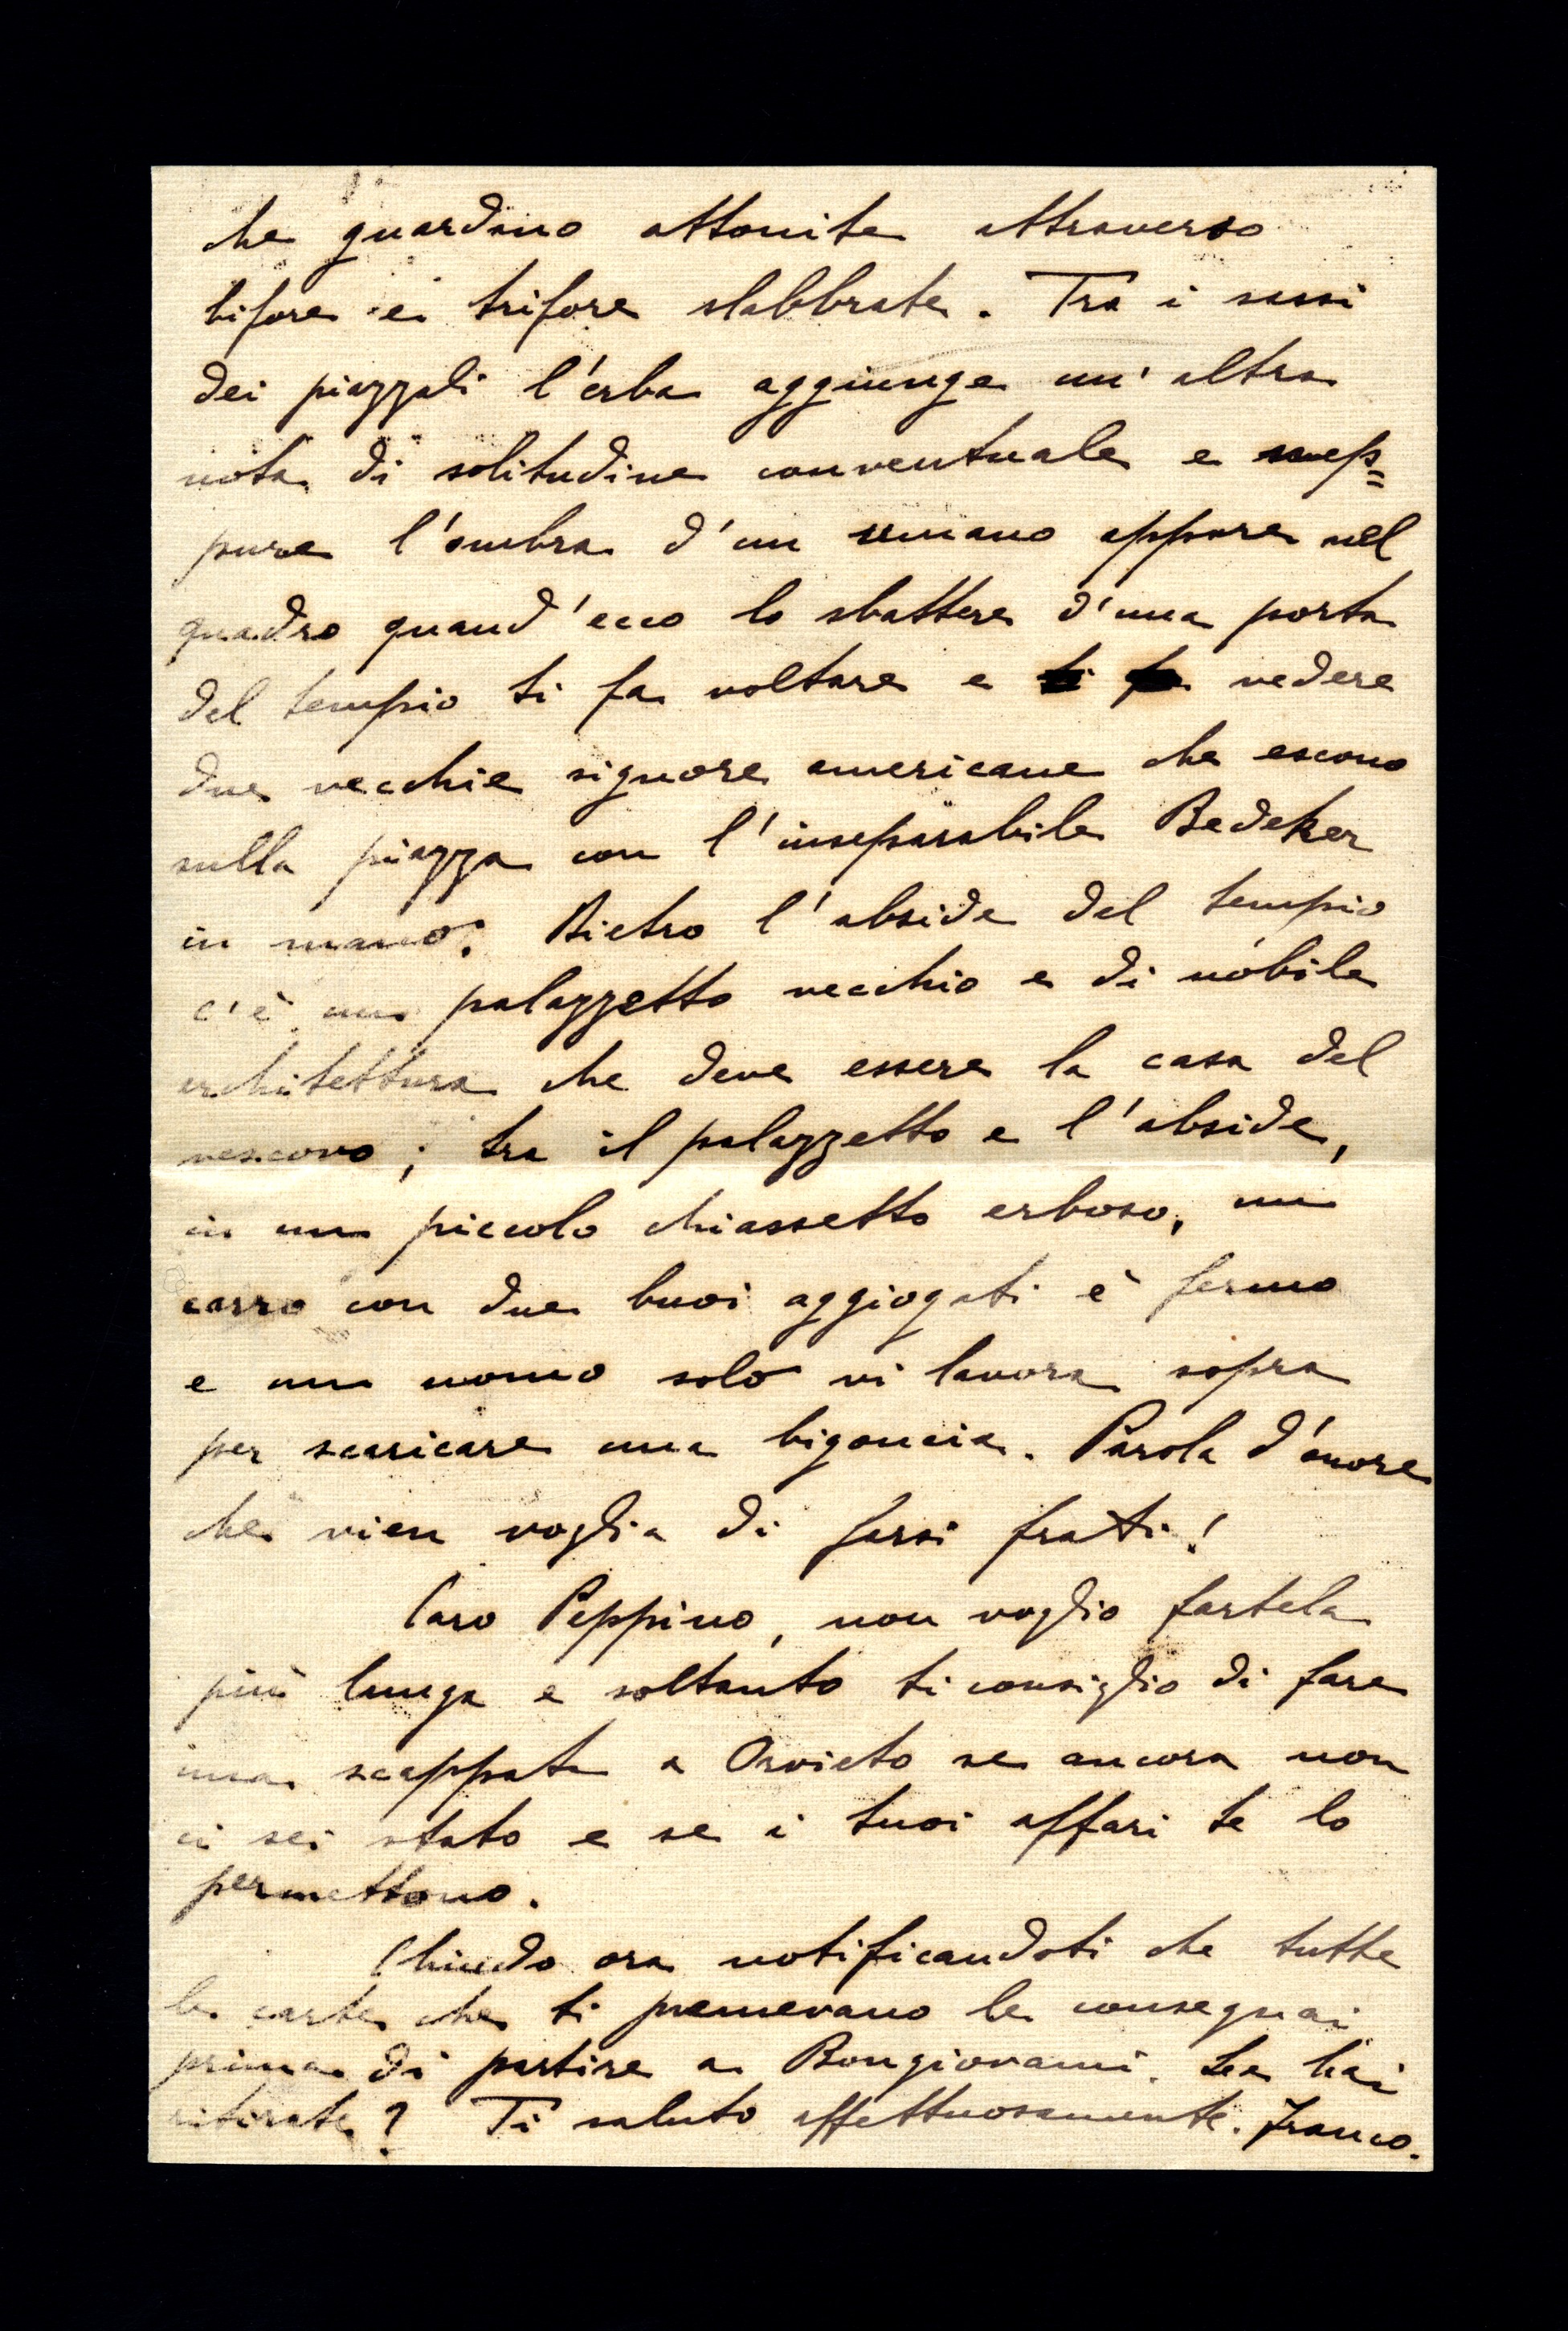 che guardano attonite attraverso
bifore e trifore slabbrate. Tra i sassi
dei piazzali l'erba aggiunge un'altra
nota di solitudine conventuale e nep=
pure l'ombra d'un umano appare nel
quadro quand'ecco lo sbattere d'una porta
del tempio ti fa voltare e ti fa vedere
due vecchie signore americane che escono
sulla piazza con l'inseparabile Bedeker
in mano. Dietro l'abside del tempio
c'è un palazzetto vecchio e di nobile
architettura che deve essere la casa del
vescovo; tra il palazzetto e l'abside,
in un piccolo chiassetto erboso, un
carro con due buoi aggiogati è fermo
e un uomo solo vi lavora sopra
per scaricare una bigoncia. Parola d'onore
che vien voglia di farsi frati!
Caro Peppino, non voglio fartela
più lunga e soltanto ti consiglio di fare
una scappata a Orvieto se ancora non
ci sei stato e se i tuoi affari te lo
permettono.
Chiudo ora notificandoti che tutte
le carte che ti premevano le consegnai
prima di partire a Bongiovanni. Le hai
ritirate? Ti saluto affettuosamente. Franco.